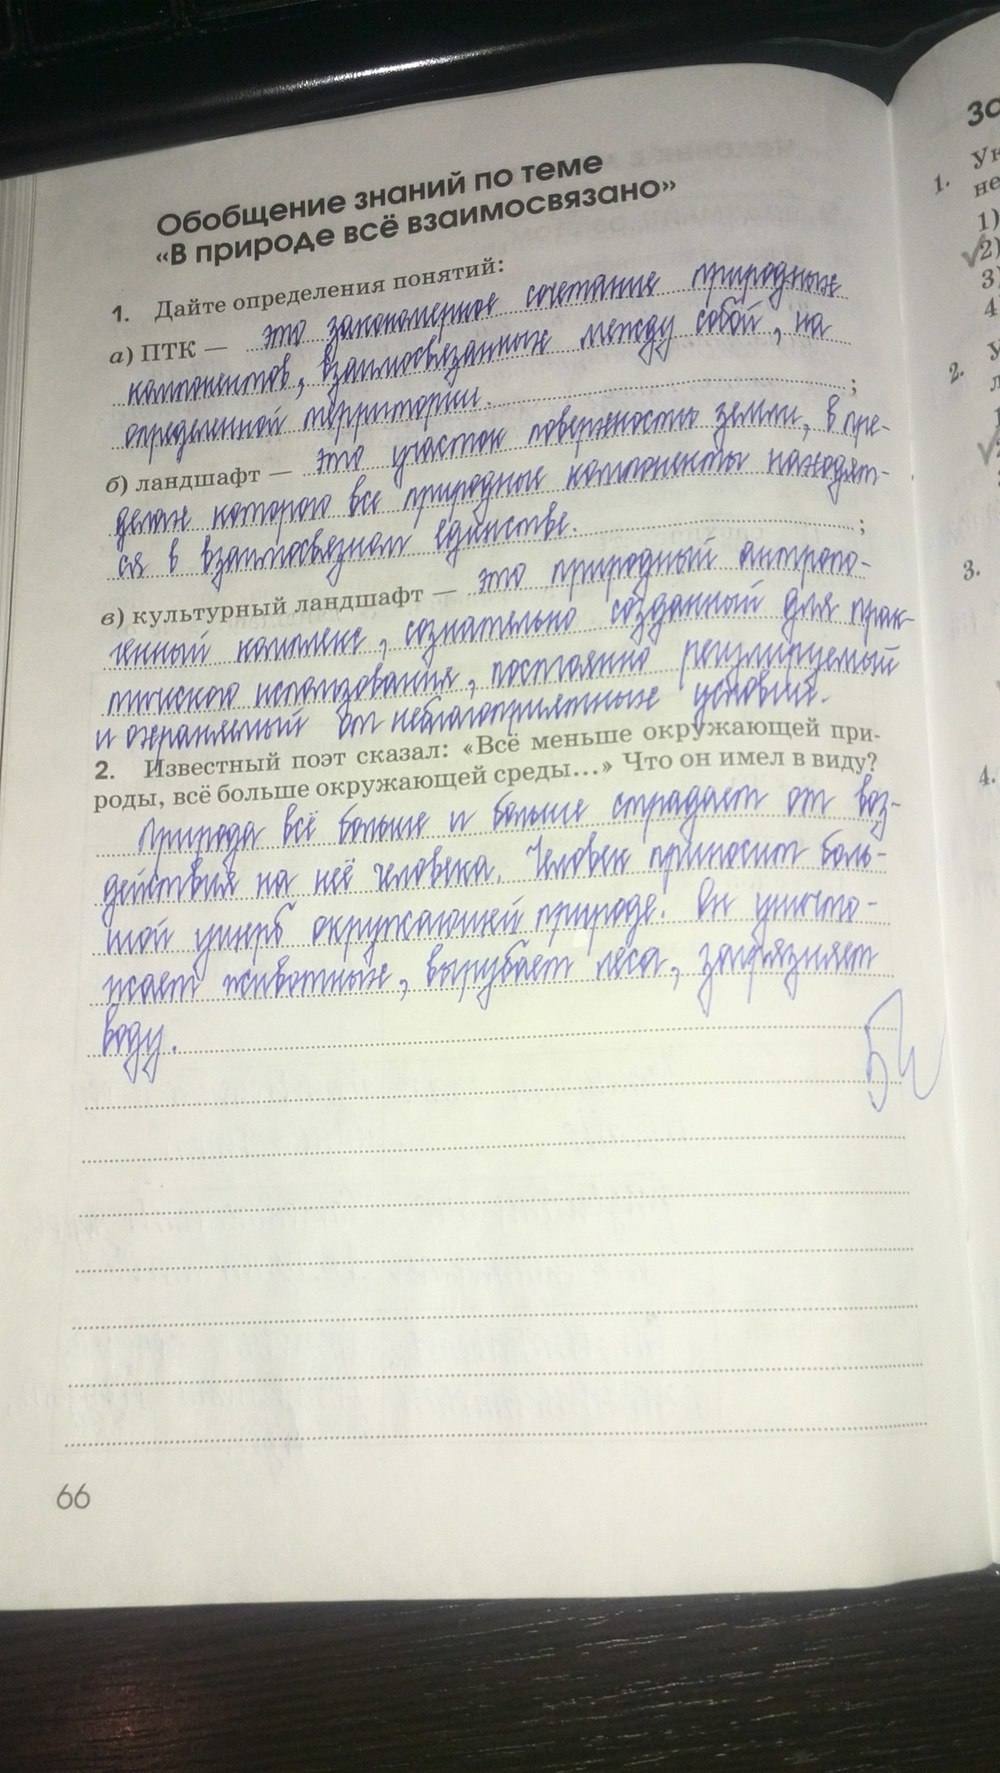 Обобщение знаний по теме
«В природе всё взаимосвязано»
1. Дайте определения понятий:
а) ПТК — это закономерное сочетание природных
компонентов, взаимосвязанных между собой, на
определенной территории. ;
б) ландшафт — это участок поверхности земли, в пре-
делах которого все природные компоненты находят-
ся в взаимосвязном единстве. ;
в) культурный ландшафт — это природный антропо-
генный комплекс, сознательно созданный для прак-
тического использования, постоянно регулируемый
и охраняемый от неблагоприятных условий.
2. Известный поэт сказал: «Всё меньше окружающей при-
роды, всё больше окружающей среды...» Что он имел в виду?
Природа всё больше и больше страдает от воз-
действия на неё человека. Человек приносит боль-
шой ущерб окружающей природе. Он уничто-
жает животных, вырубает леса, загрязняет
воду.
66
1.
1)
2)
3)
4
2.
3.
4.